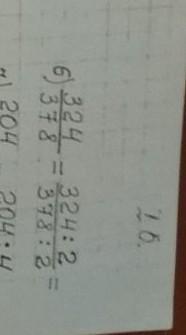 1 б.
б) 324/378 = 324:2/378:2 =
204 204:4